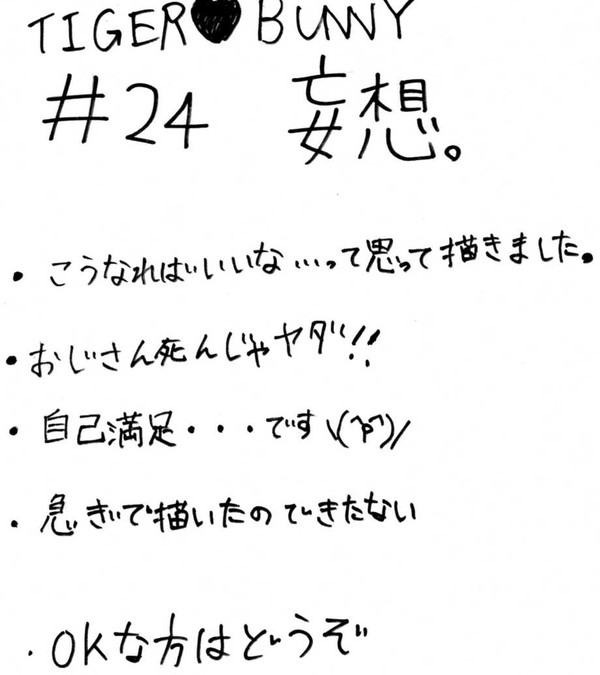 TIGER♥BUNNY
#24 妄想。
・こうなればいいな…って思って描きました。
・おじさん死んじゃヤダ!!
・自己満足・・・です\(^p^)/
・急ぎで描いたのできたない
・OKな方はどうぞ